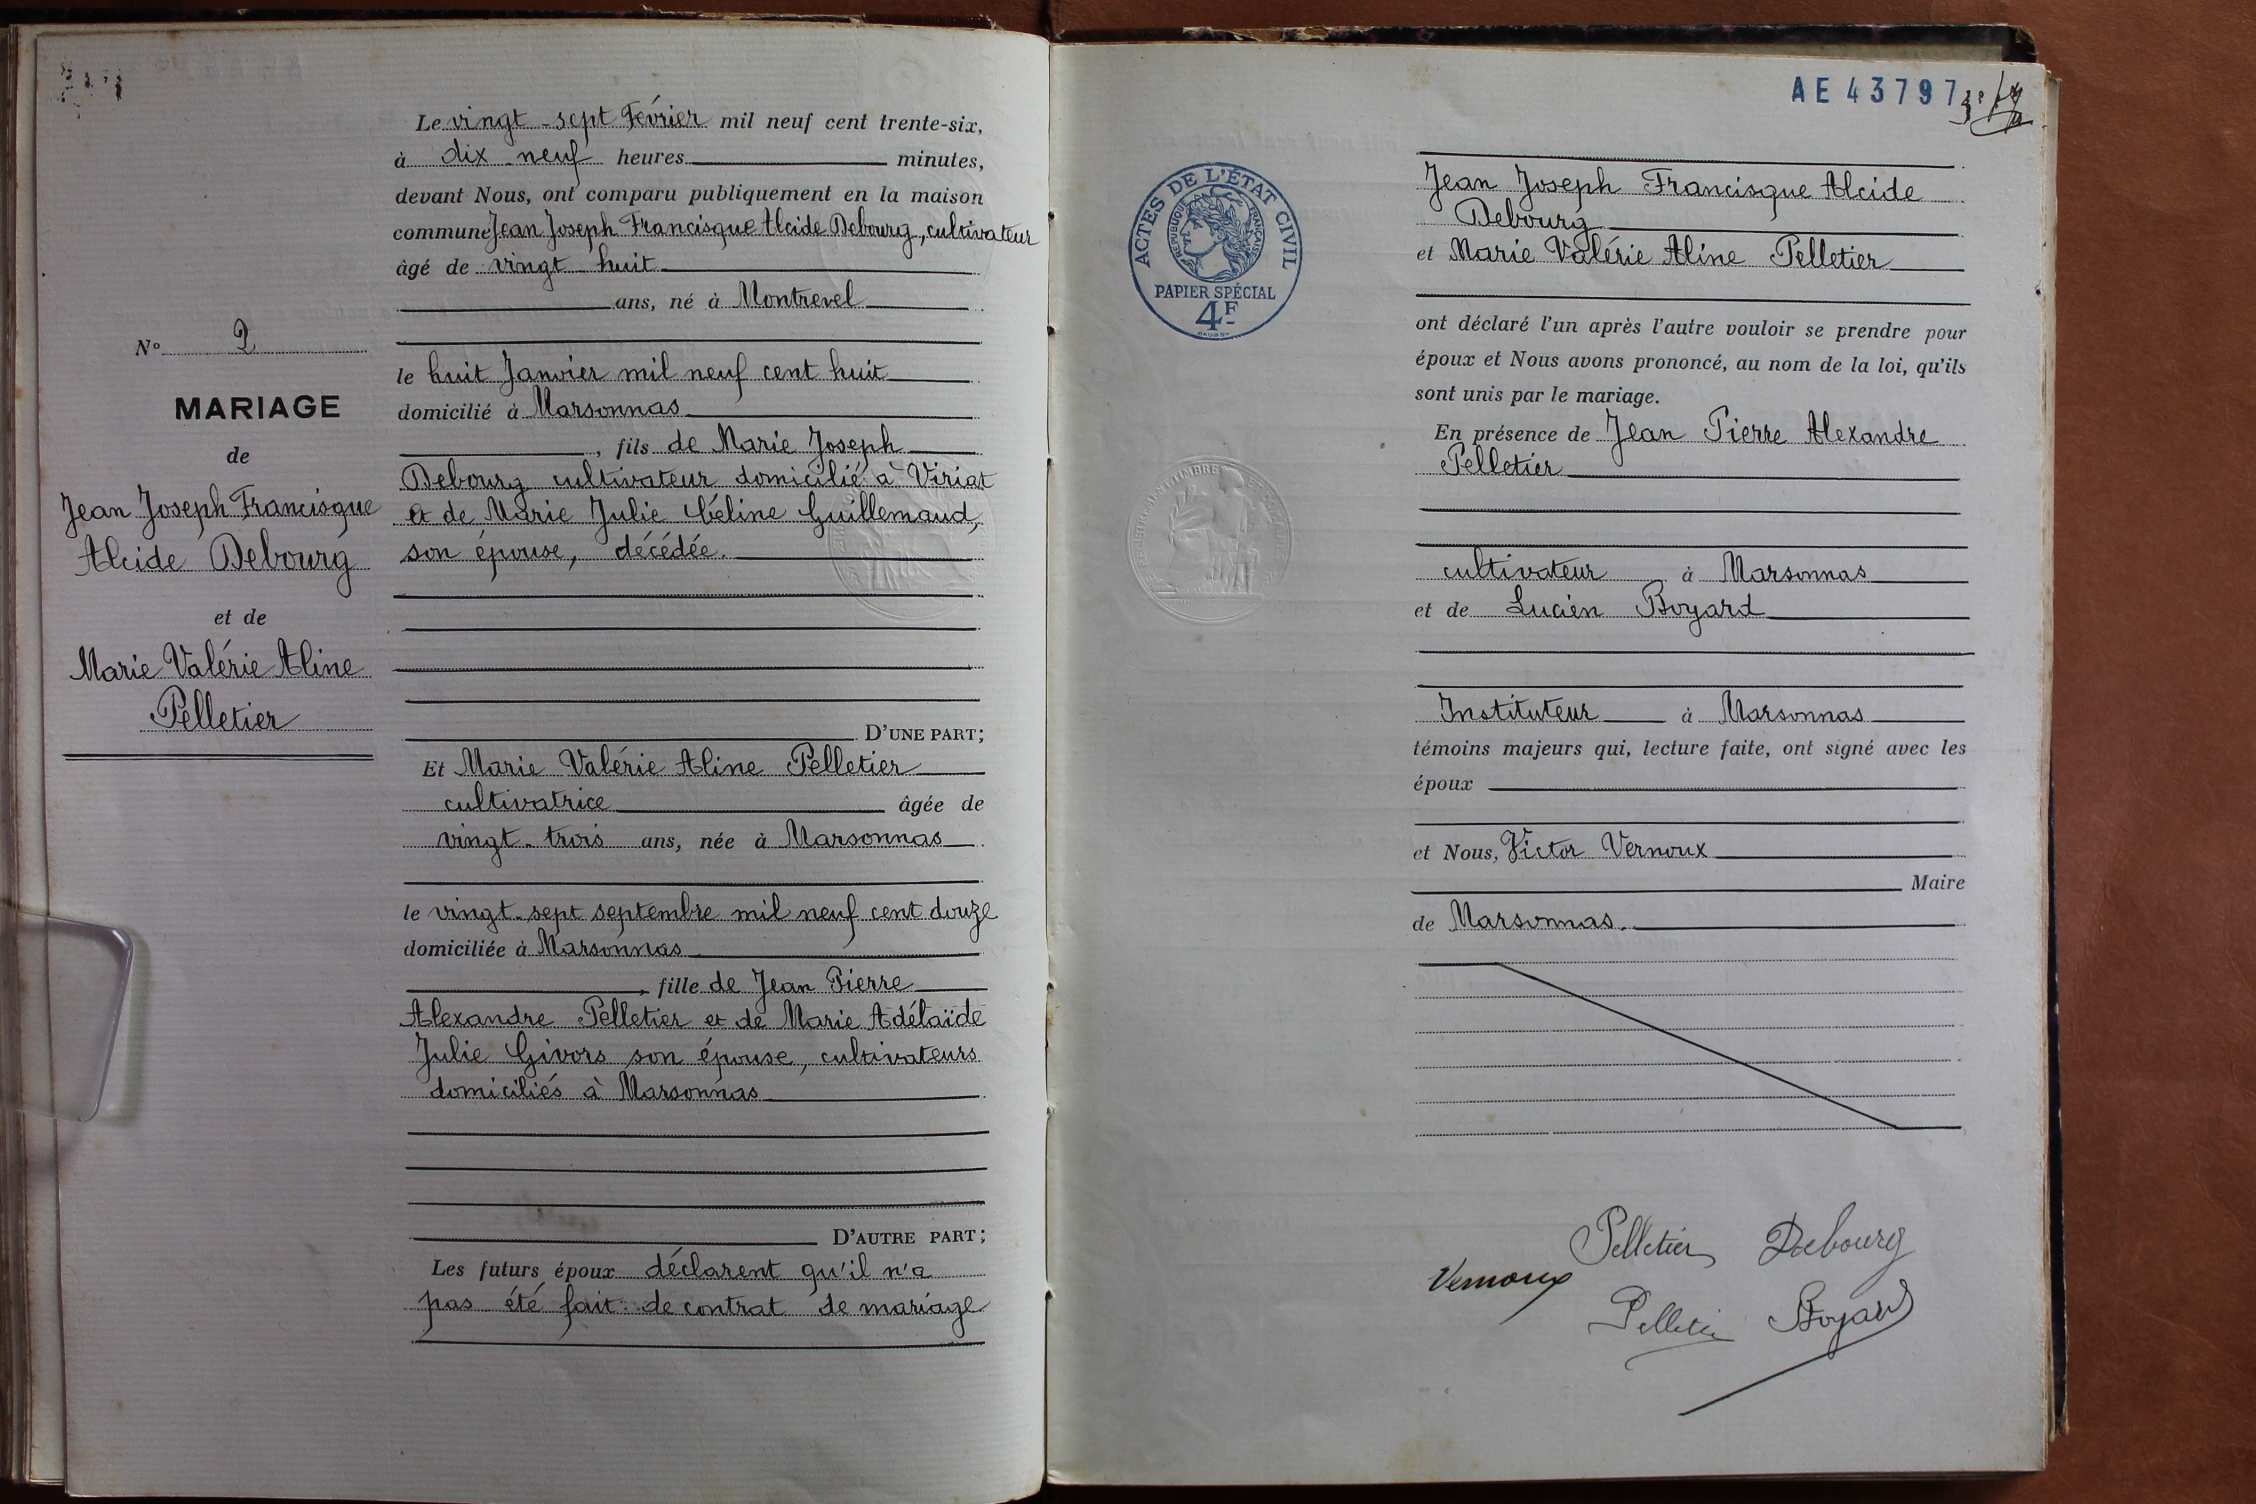 Le vingt-sept Février mil neuf cent trente-six,
à dix-neuf heures minutes,
devant Nous, ont comparu publiquement en la maison
commune Jean Joseph Francisque Alcide Debourg, cultivateur
âgé de vingt huit
ans, né à Montrevel
le huit Janvier mil neuf cent huit
domicilié à Marsonnas
, fils de Marie Joseph
Debourg cultivateur domicilié à Viriat
et de Marie Julie Céline Guillemaud,
son épouse, décédée.
D'UNE PART;
Et Marie Valérie Aline Pelletier
cultivatrice âgée de
vingt-trois ans, née à Marsonnas
le vingt-sept septembre mil neuf cent douze
domiciliée à Marsonnas
, fille de Jean Pierre
Alexandre Pelletier et de Marie Adélaïde
Julie Givors son épouse, cultivateurs
domiciliés à Marsonnas
D'AUTRE PART;
Les futurs époux déclarent qu'il n'a
pas été fait de contrat de mariage
N° 2
MARIAGE
de
Jean Joseph Francisque
Alcide Debourg
et de
Marie Valérie Aline
Pelletier
AE 43797
ACTES DE L'ÉTAT CIVIL
RÉPUBLIQUE FRANÇAISE
PAPIER SPÉCIAL
4F
Jean Joseph Francisque Alcide
Debourg
et Marie Valérie Aline Pelletier
ont déclaré l'un après l'autre vouloir se prendre pour
époux et Nous avons prononcé, au nom de la loi, qu'ils
sont unis par le mariage.
En présence de Jean Pierre Alexandre
Pelletier
cultivateur à Marsonnas
et de Lucien Boyard
Instituteur à Marsonnas
témoins majeurs qui, lecture faite, ont signé avec les
époux
et Nous, Victor Vernoux
Maire
de Marsonnas.
Pelletier Debourg
Vernoux
Pelletier Boyard